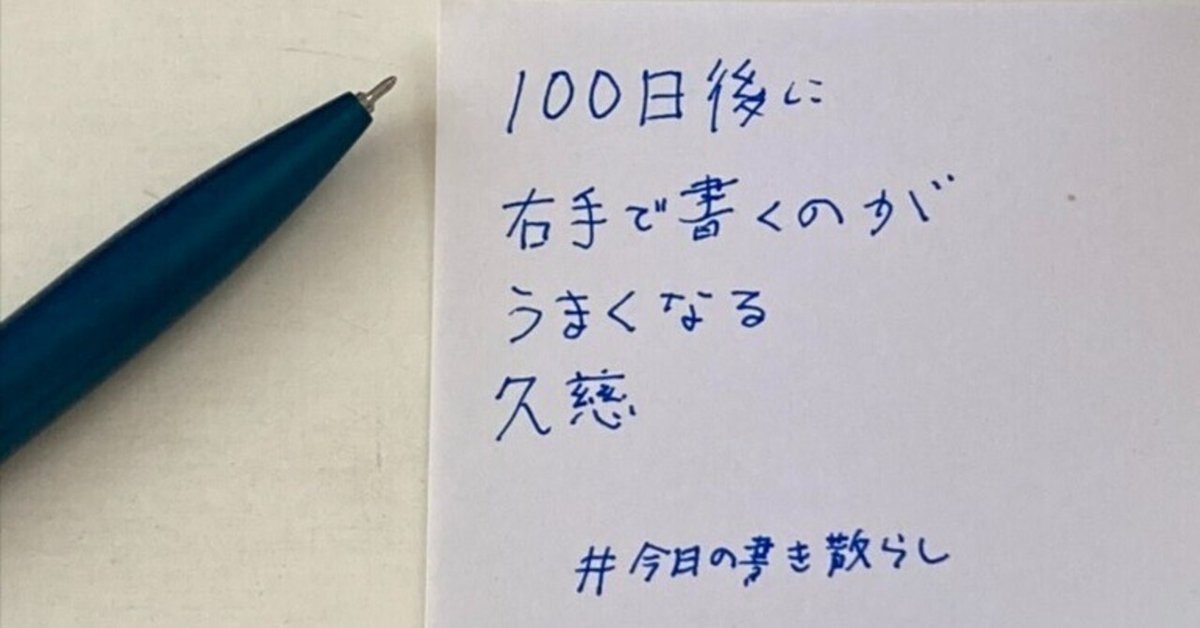 100日後に
右手で書くのが
うまくなる
久慈
#今日の書き散らし